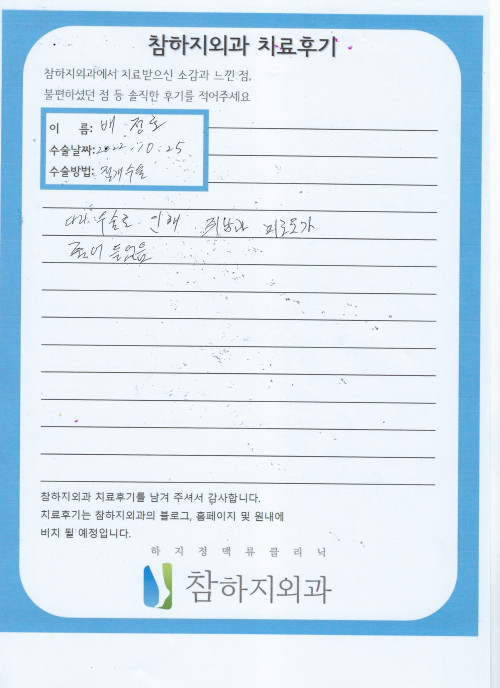 참하지외과 치료후기
참하지외과에서 치료받으신 소감과 느낀 점,
불편하셨던 점 등 솔직한 후기를 적어주세요
이 름: 배 정
수술날짜: 2022.10.25
수술방법: 절개수술
다리 수술로 인해 쥐남과 피로도가
줄어 들었음
참하지외과 치료후기를 남겨 주셔서 감사합니다.
치료후기는 참하지외과의 블로그, 홈페이지 및 원내에
비치 될 예정입니다.
하지정맥류클리닉
참하지외과